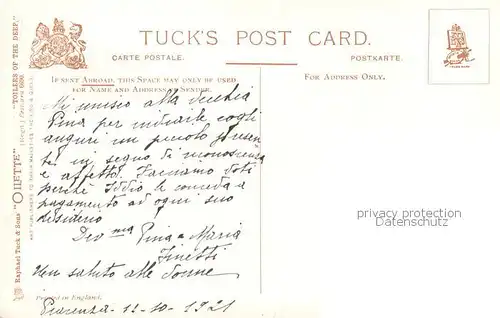 TUCK'S POST CARD.
CARTE POSTALE. POSTKARTE.
IF SENT ABROAD, THIS SPACE MAY ONLY BE USED
FOR NAME AND ADDRESS OF SENDER.
FOR ADDRESS ONLY.
Mi unisco alla vecchia
Pina per inviarle cogli
auguri un piccolo presen
te in segno di riconoscenza
e affetto. Facciamo voti
perchè Iddio le conceda a
pagamento ad ogni suo
desiderio
Dev ma Pina e Maria
Finetti
Un saluto alle donne
Printed in England.
Piacenza 11-10-1921
Raphael Tuck & Sons' "OILETTE" "TOILERS OF THE DEEP."
protected copyright
www.oldthing.de